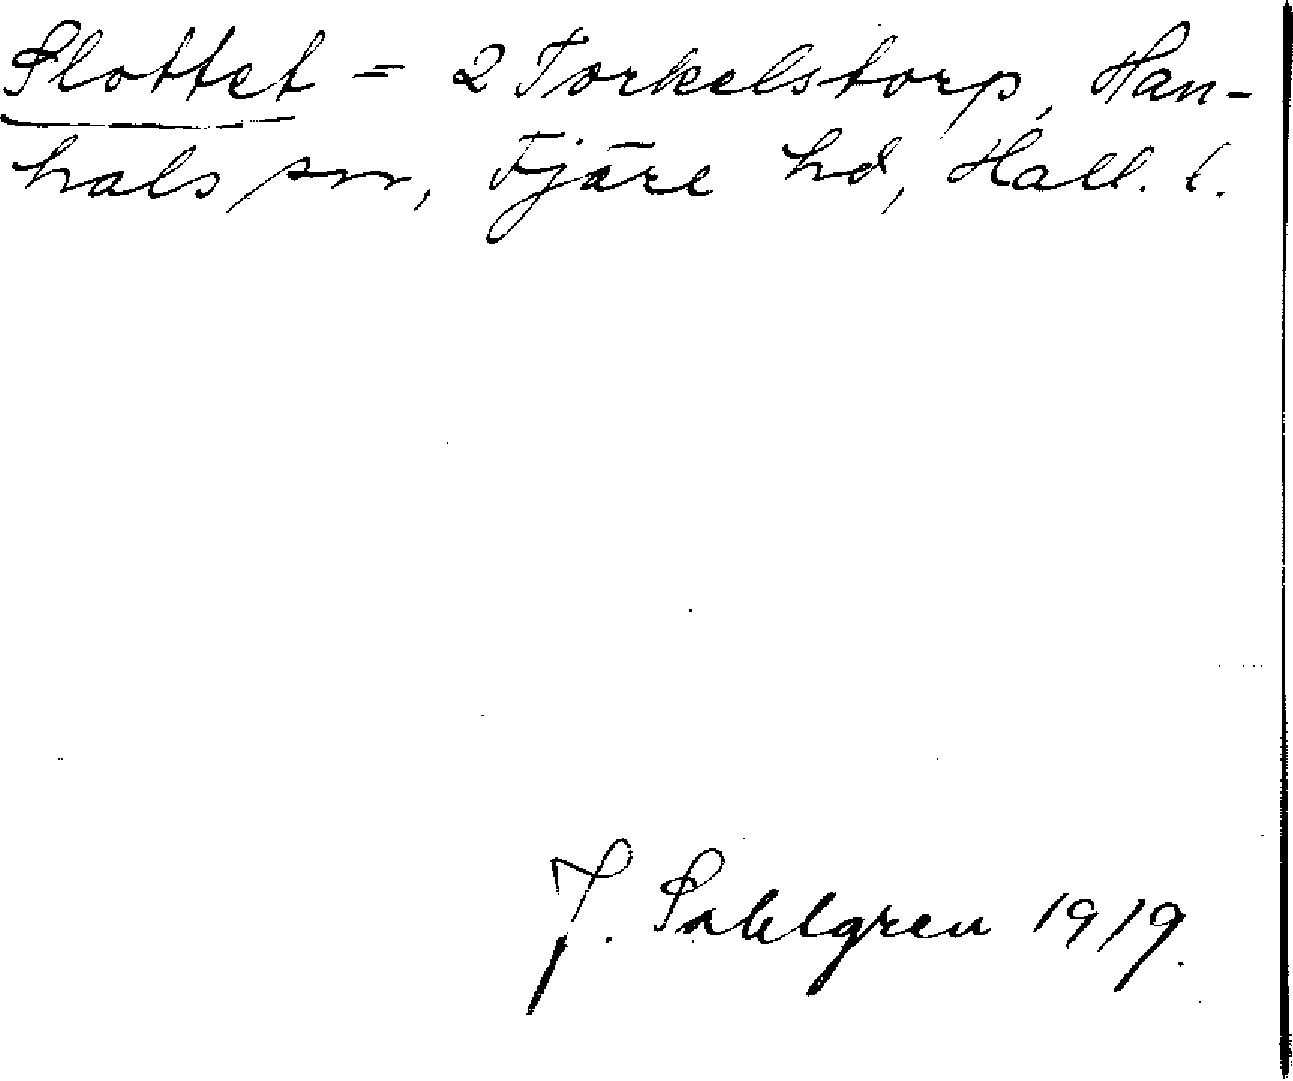 Slottet = 2 Torkelstorp, Han-
hals sn, Fjäre hd, Hall. l.
J. Sahlgren 1919.